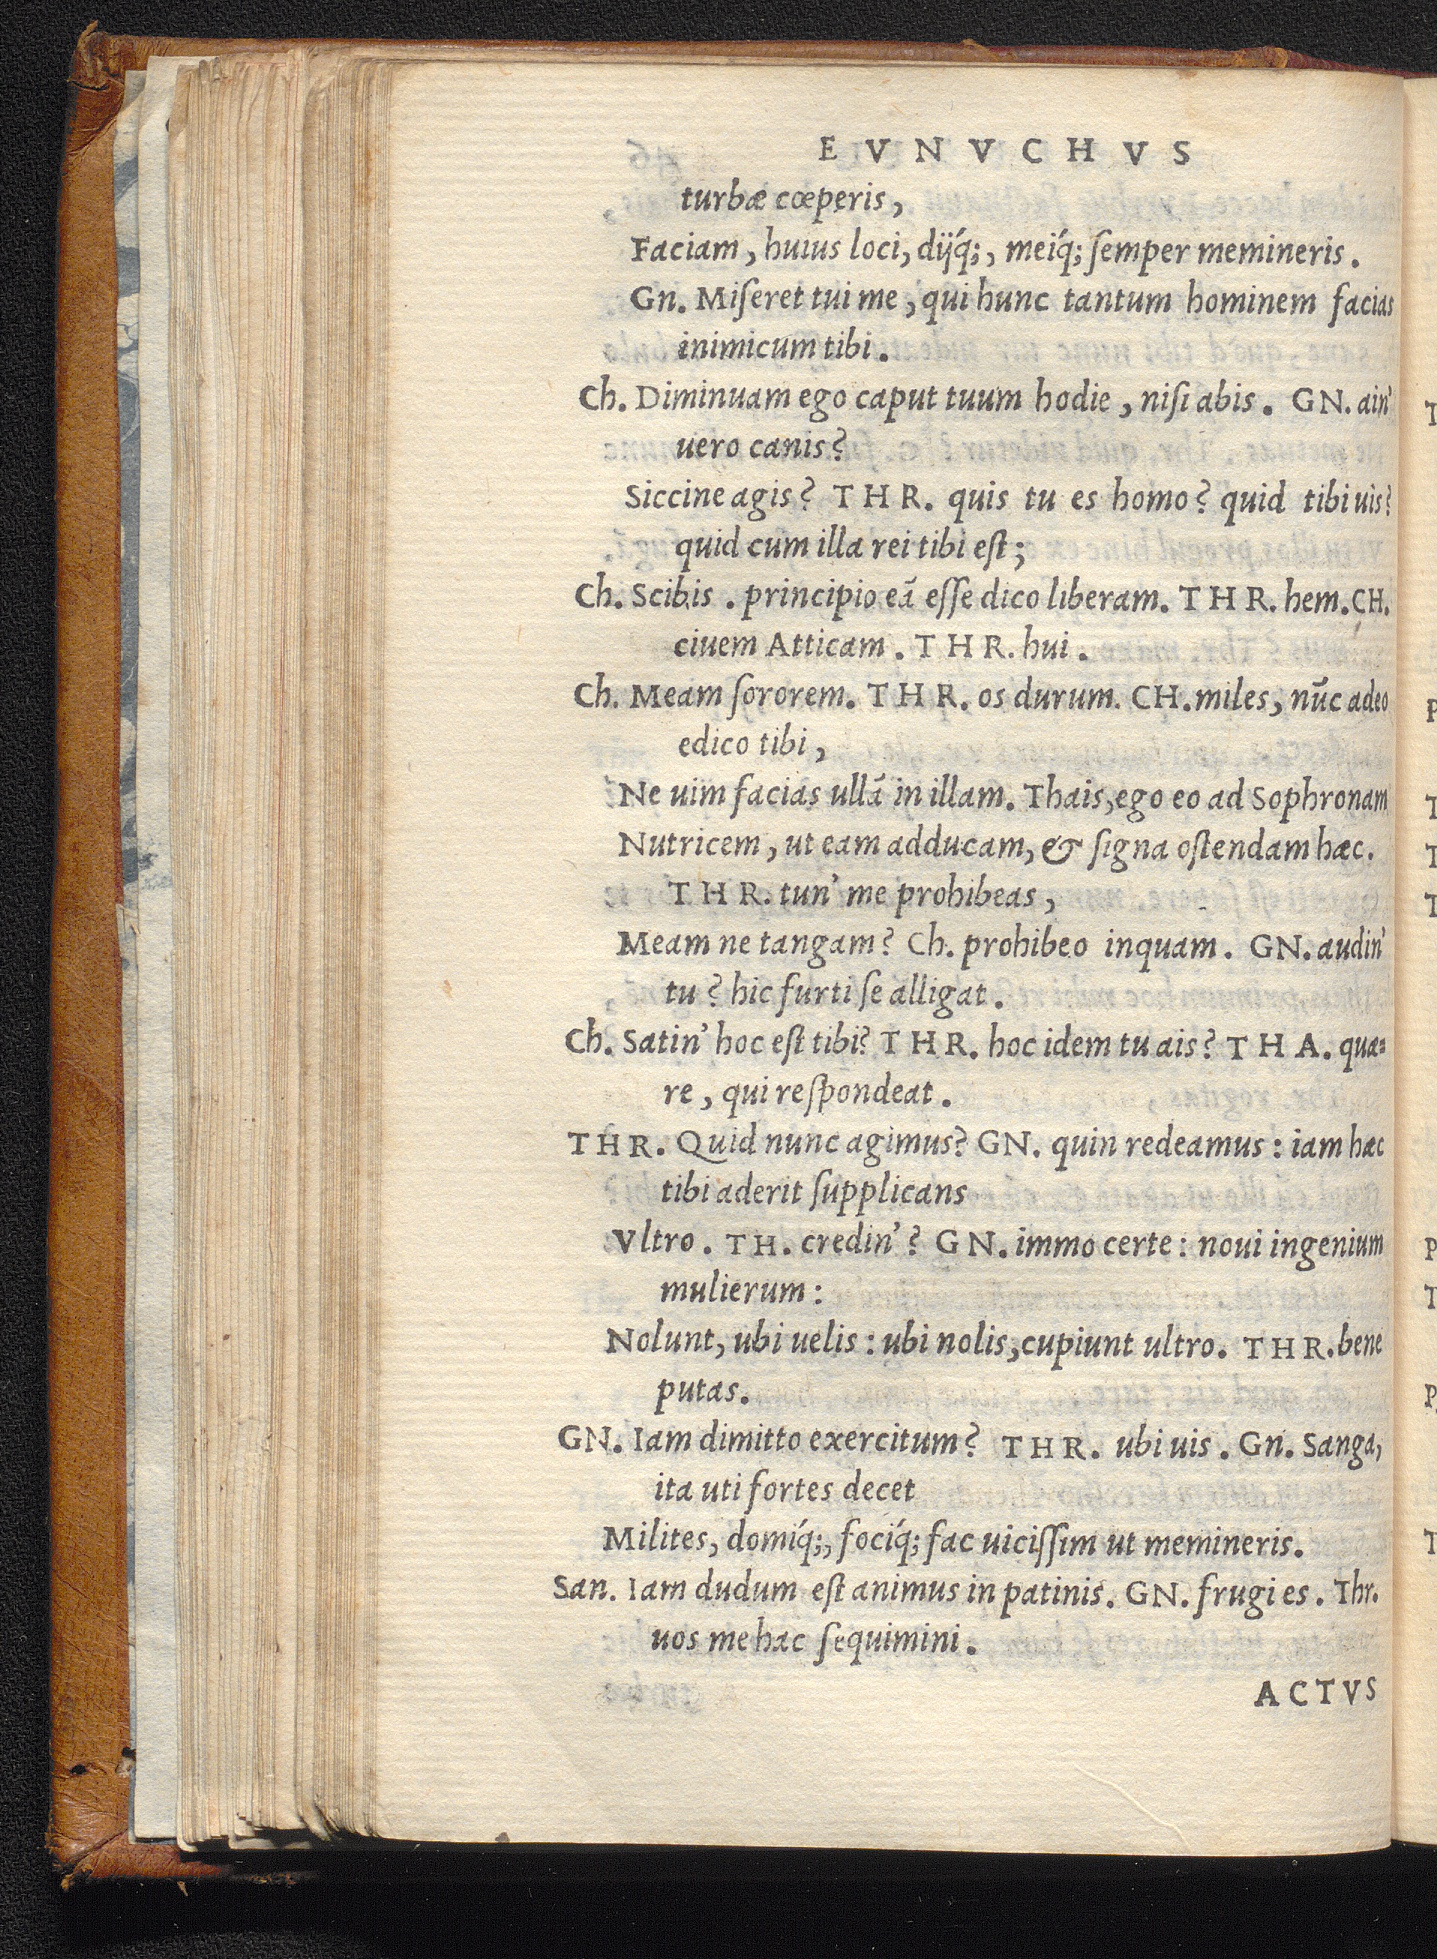 EVNVCHVS
turbæ cœperis,
Faciam, huius loci, dijq́;, meiq́; ſemper memineris.
Gn. Miſeret tui me, qui hunc tantum hominem facias
inimicum tibi.
Ch. Diminuam ego caput tuum hodie, niſi abis. GN. ain'
uero canis?
Siccine agis? THR. quis tu es homo? quid tibi uis?
quid cum illa rei tibi eſt;
Ch. Scibis. principio eā eſſe dico liberam. THR. hem. CH.
ciuem Atticam. THR. hui.
Ch. Meam ſororem. THR. os durum. CH. miles, nūc adeo
edico tibi,
Ne uim facias ullā in illam. Thais, ego eo ad Sophronam
Nutricem, ut eam adducam, & ſigna oſtendam hæc.
THR. tun' me prohibeas,
Meam ne tangam? Ch. prohibeo inquam. GN. audin'
tu? hic furti ſe alligat.
Ch. Satin' hoc eſt tibi? THR. hoc idem tu ais? THA. quæ=
re, qui reſpondeat.
THR. Quid nunc agimus? GN. quin redeamus: iam hæc
tibi aderit ſupplicans
Vltro. TH. credin'? GN. immo certe: noui ingenium
mulierum:
Nolunt, ubi uelis: ubi nolis, cupiunt ultro. THR. bene
putas.
GN. Iam dimitto exercitum? THR. ubi uis. Gn. Sanga,
ita uti fortes decet
Milites, domiq́;, fociq́; fac uiciſſim ut memineris.
San. Iam dudum eſt animus in patinis. GN. frugi es. Thr.
uos me hac ſequimini.
ACTVS